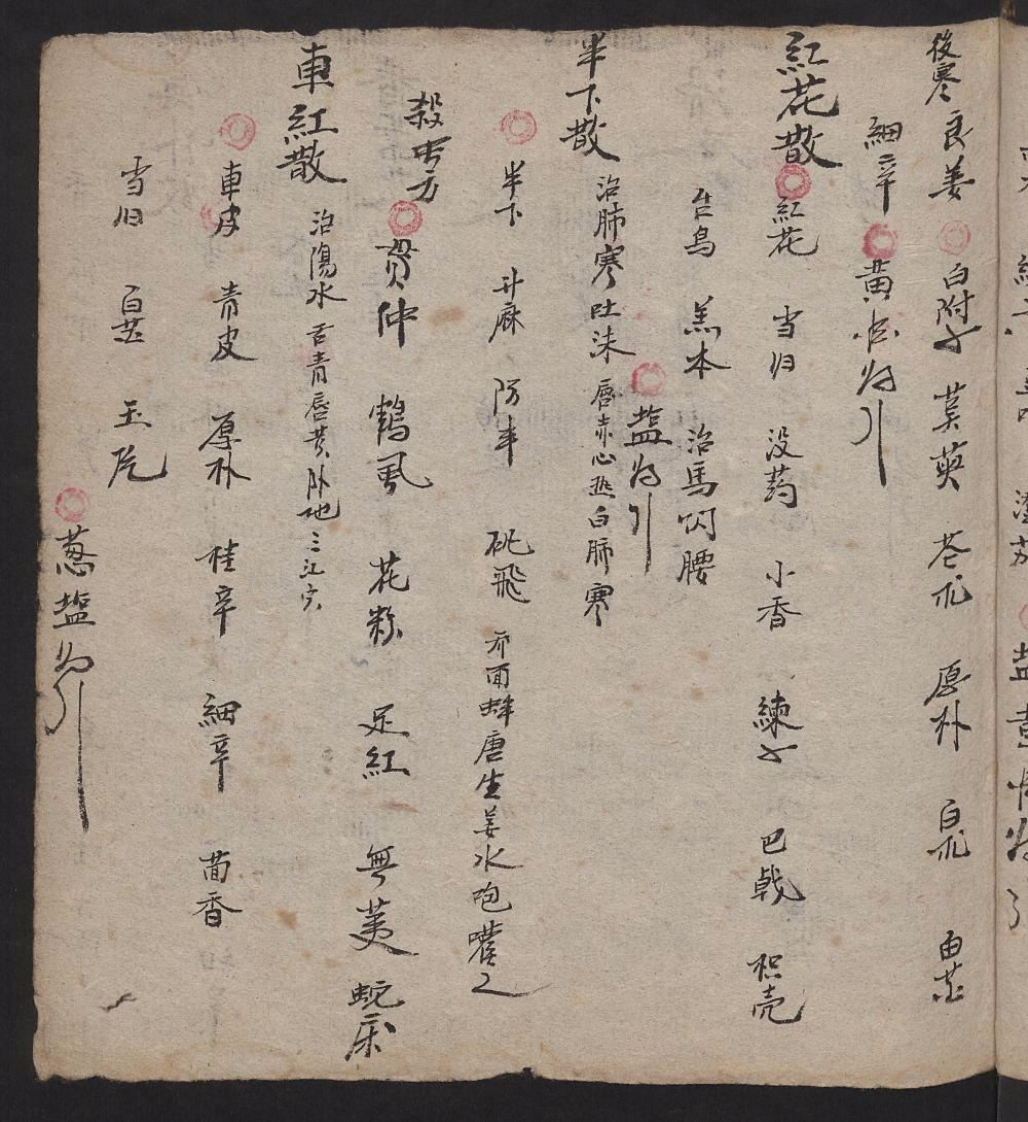 後寒 良姜 白附子 茱萸 苍朮 厚朴 白朮 白芷
細辛 黄酒为引
紅花散 紅花 当归 没药 小香 練子 巴戟 枳壳
台烏 羔本 治馬闪腰
塩为引
半下散 治肺寒吐沫 唇赤心热白肺寒
半下 升麻 防丰 矾飛 荞面蜂唐生姜水咆嚾之
殺虫方 贯仲 鶴虱 花粉 足紅 無荑 蛇床
車紅散 治傷水舌青唇黄卧地三江穴
車皮 青皮 厚朴 桂辛 細辛 茴香
当归 白芷 玉片
葱塩为引